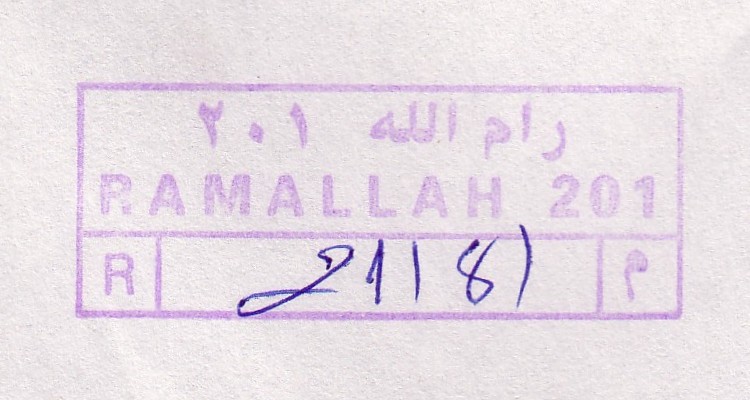 رام الله ٢٠١
RAMALLAH 201
R 21181 م